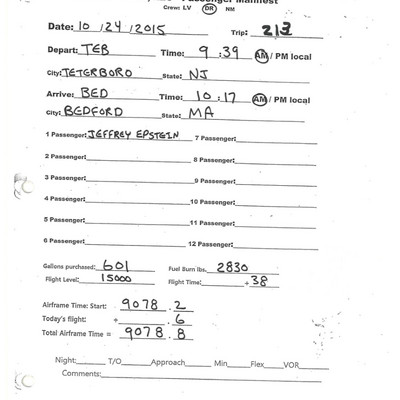 Passenger Manifest
Crew: LV DR NM
Date: 10 / 24 / 2015 Trip: 213
Depart: TEB Time: 9 : 39 AM / PM local
City: TETERBORO State: NJ
Arrive: BED Time: 10 : 17 AM / PM local
City: BEDFORD State: MA
1 Passenger: JEFFREY EPSTEIN 7 Passenger:
2 Passenger: 8 Passenger:
3 Passenger: 9 Passenger:
4 Passenger: 10 Passenger:
5 Passenger: 11 Passenger:
6 Passenger: 12 Passenger:
Gallons purchased: 601 Fuel Burn lbs. 2830
Flight Level: 15000 Flight Time: + 38
Airframe Time: Start: 9078 . 2
Today's flight: + . 6
Total Airframe Time = 9078 . 8
Night: T/O Approach Min Flex VOR
Comments: